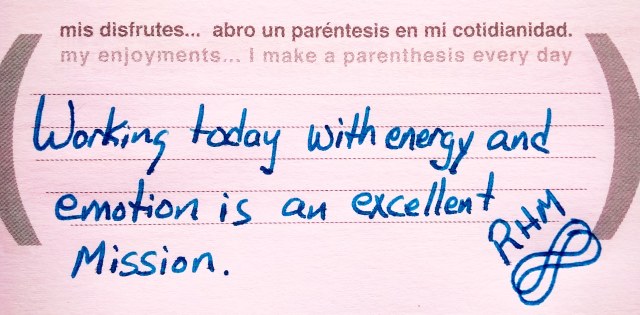 mis disfrutes... abro un paréntesis en mi cotidianidad.
my enjoyments... I make a parenthesis every day
Working today with energy and
emotion is an excellent
Mission.
RHM